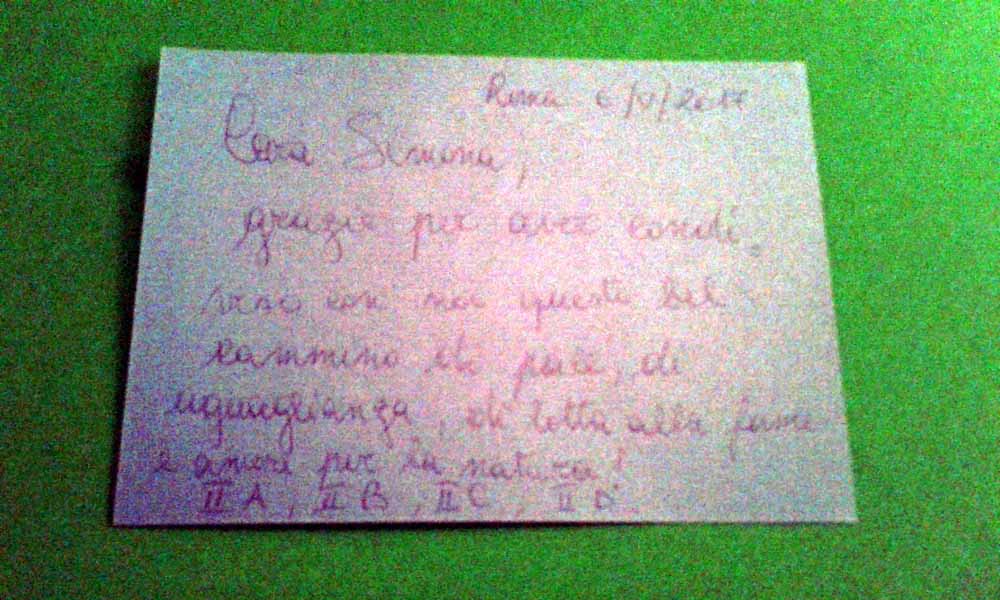 Roma 6/V/2017
Cara Simona,
grazie per aver condi-
viso con noi questo bel
cammino di pace, di
uguaglianza, di lotta alla fame
e amore per la natura!
II A, II B, II C, II D.